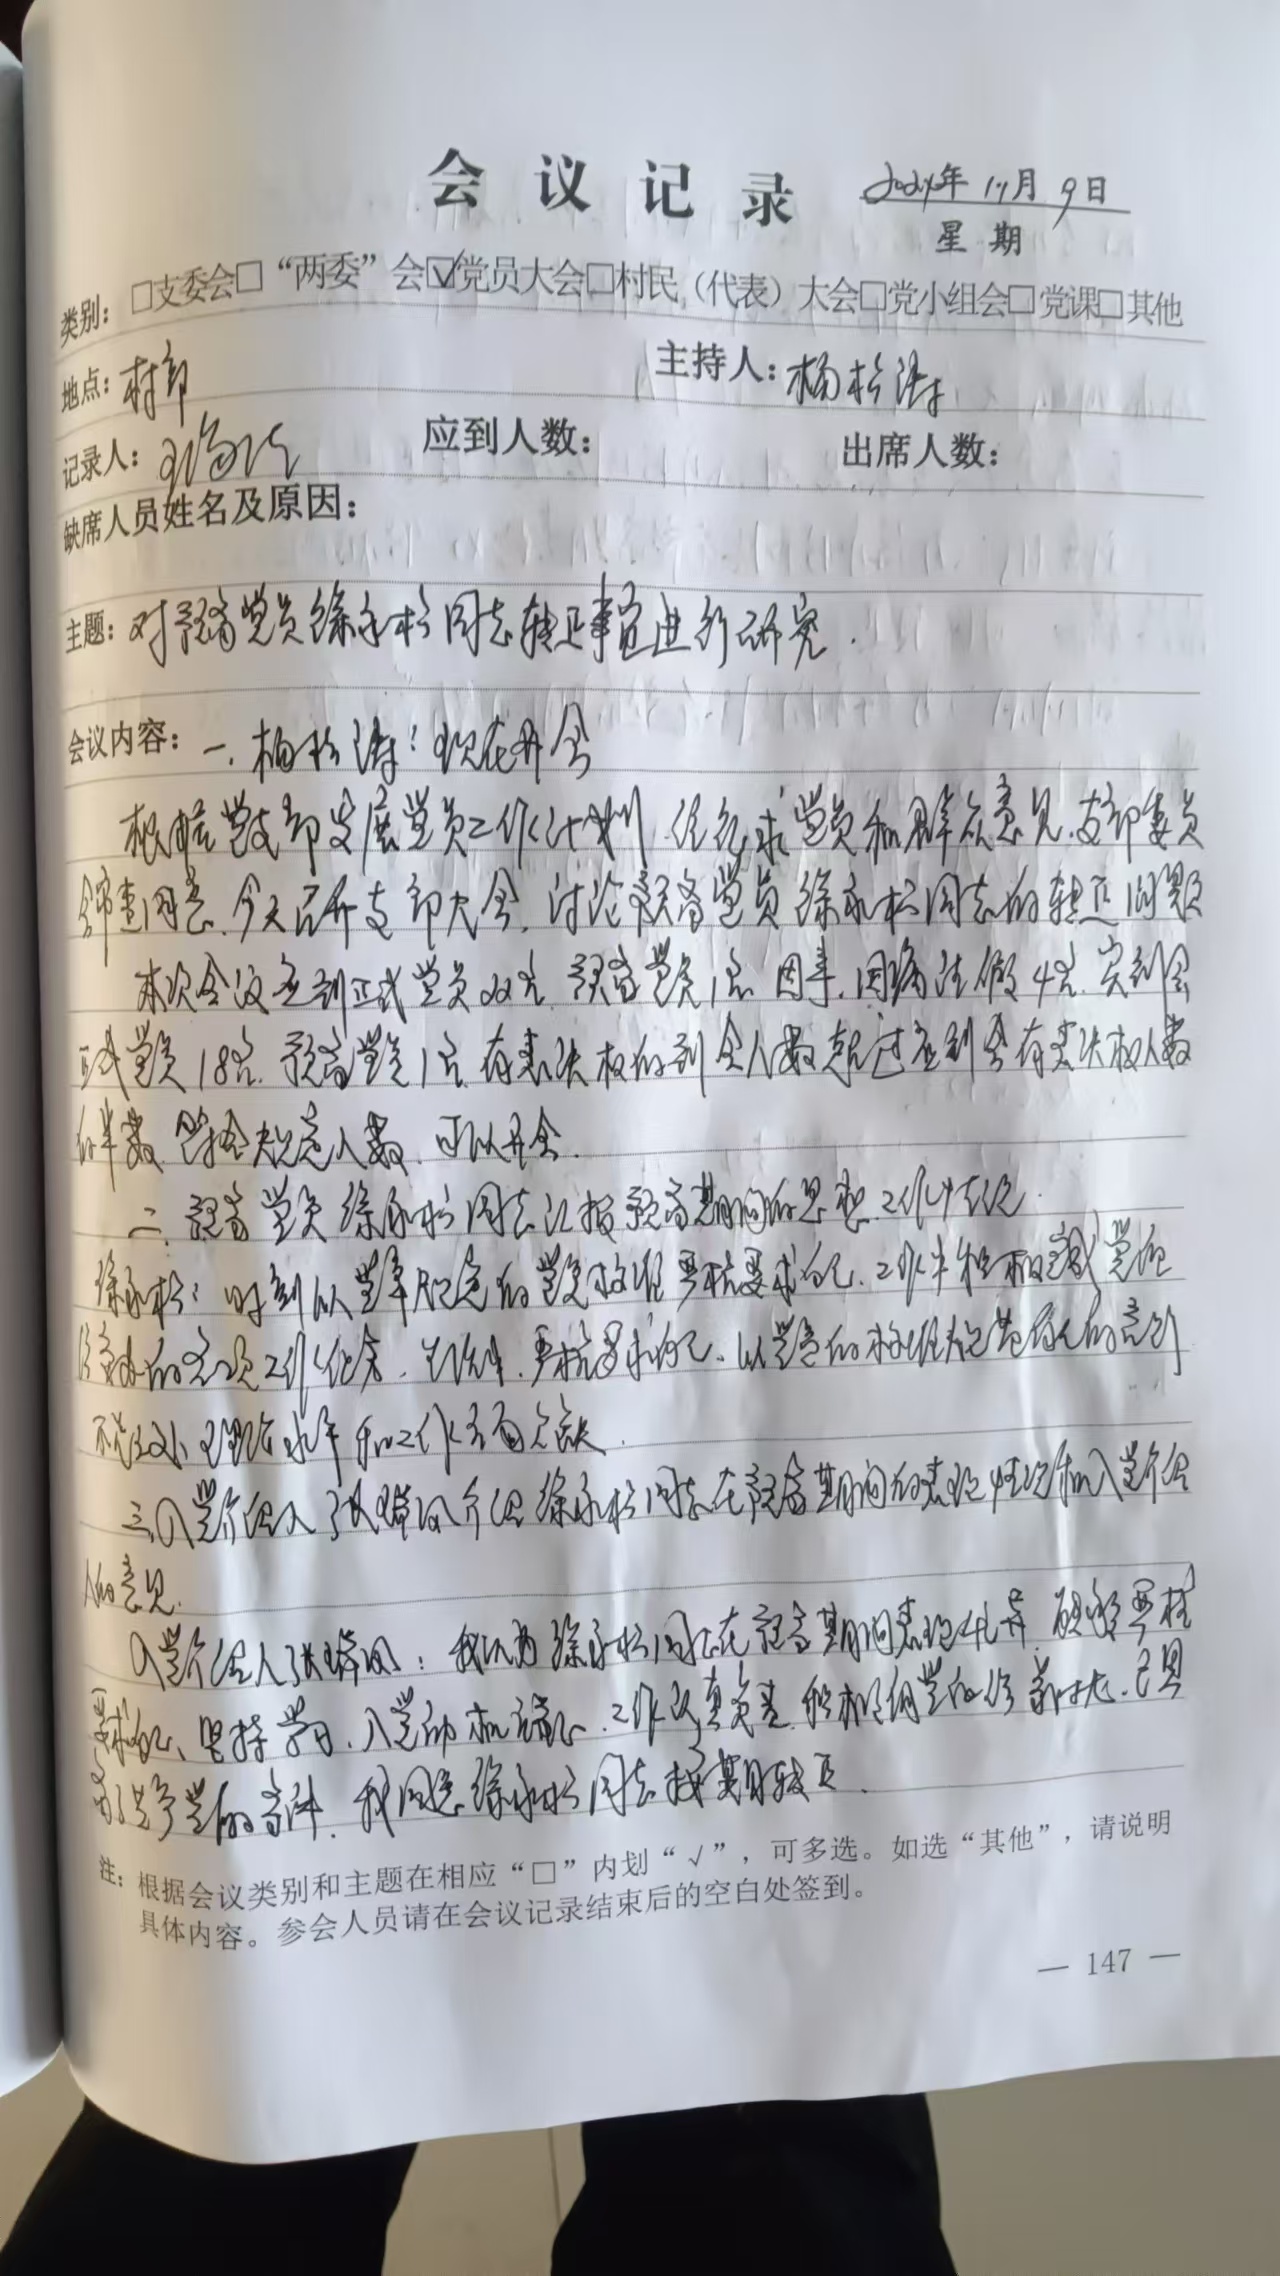 会议记录
2024年11月9日
星期
类别：□支委会□“两委”会☑党员大会□村民（代表）大会□党小组会□党课□其他
地点：村部 主持人：杨松涛
记录人： 应到人数： 出席人数：
缺席人员姓名及原因：
主题：对预备党员徐永松同志转正事宜进行研究.
会议内容：一.杨松涛：现在开会
根据党支部发展党员工作计划，经征求党员和群众意见，支部委员
会审查同意，今天召开支部大会，讨论预备党员徐永松同志的转正问题
本次会议应到正式党员22名，预备党员1名，因事、因病请假4名，实到会
正式党员18名，预备党员1名，有表决权的到会人数超过应到会有表决权人数
的半数，符合规定人数，可以开会.
二、预备党员徐永松同志汇报预备期间的思想、工作情况.
徐永松：时刻以党章规定的党员标准严格要求自己，工作中积极完成党组
的各项工作任务，生活中，严格要求自己，以党员的标准规范自己的言行
不足之处，理论水平和工作方面欠缺.
三、入党介绍人张瑞凤介绍徐永松同志在预备期间的表现情况和入党介绍
人的意见.
入党介绍人张瑞凤：我认为徐永松同志在预备期间表现优异，能够严格
要求自己、坚持学习、入党动机端正，工作认真负责，积极向党组织靠拢，已具
备了共产党员的条件，我同意徐永松同志按期转正.
注：根据会议类别和主题在相应“□”内划“√”，可多选。如选“其他”，请说明
具体内容。参会人员请在会议记录结束后的空白处签到。
— 147 —